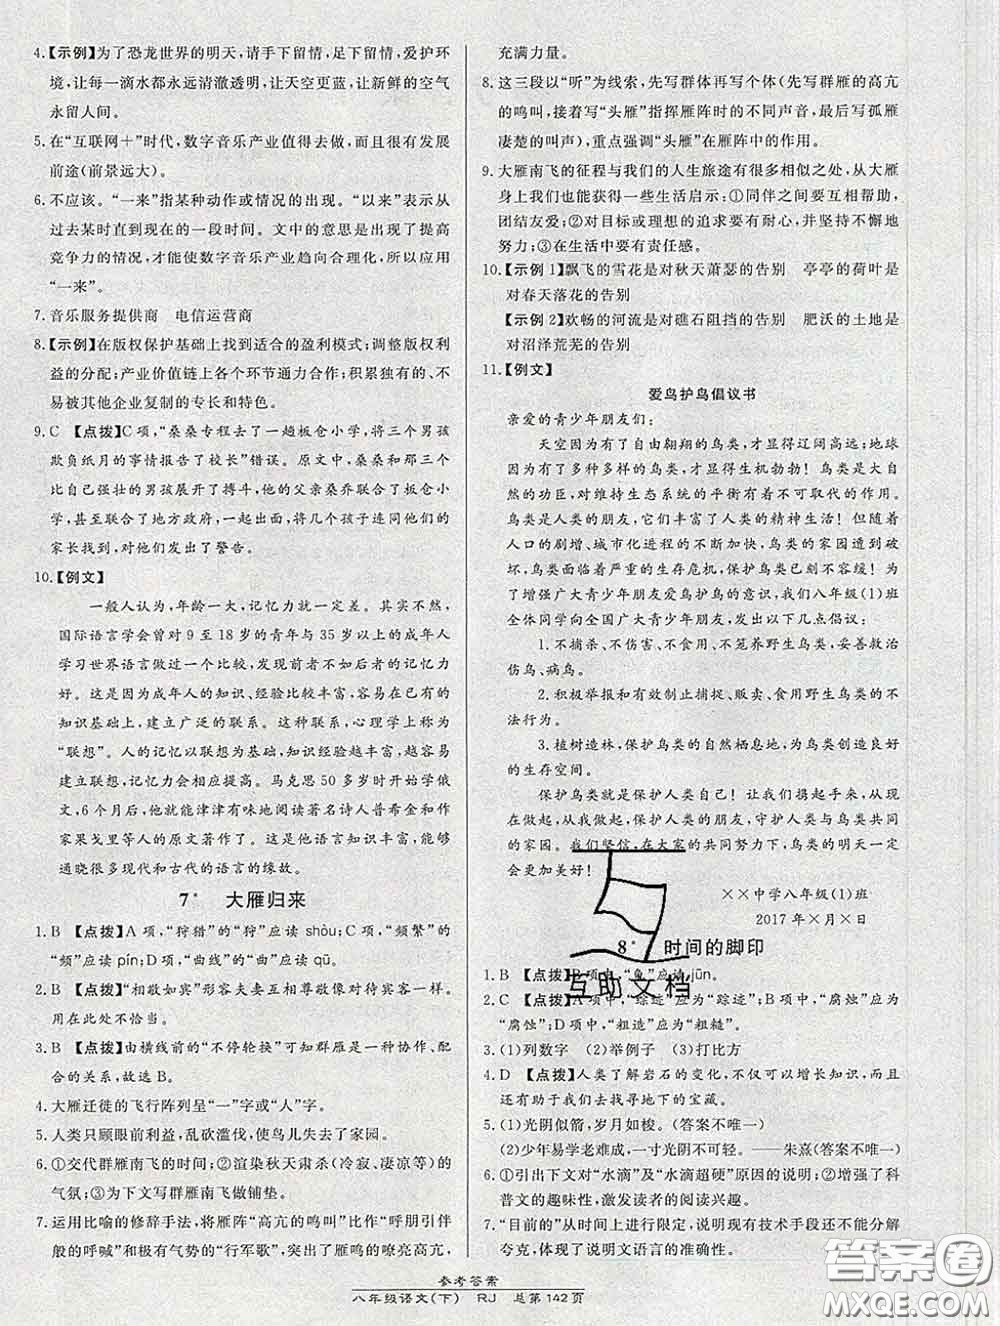 4.【示例】为了恐龙世界的明天，请手下留情，足下留情，爱护环
境，让每一滴水都永远清澈透明，让天空更蓝，让新鲜的空气
永留人间。
5.在“互联网＋”时代，数字音乐产业值得去做，而且很有发展
前途(前景远大)。
6.不应该。“一来”指某种动作或情况的出现。“以来”表示从
过去某时直到现在的一段时间。文中的意思是出现了提高
竞争力的情况，才能使数字音乐产业趋向合理化，所以应用
“一来”。
7.音乐服务提供商　电信运营商
8.【示例】在版权保护基础上找到适合的盈利模式；调整版权利
益的分配；产业价值链上各个环节通力合作；积累独有的、不
易被其他企业复制的专长和特色。
9.C 【点拨】C项，“桑桑专程去了一趟板仓小学，将三个男孩
欺负纸月的事情报告了校长”错误。原文中，桑桑和那三个
比自己强壮的男孩展开了搏斗，他的父亲桑乔联合了板仓小
学，甚至联合了地方政府，一起出面，将几个孩子连同他们的
家长找到，对他们发出了警告。
10.【例文】
一般人认为，年龄一大，记忆力就一定差。其实不然，
国际语言学会曾对9至18岁的青年与35岁以上的成年人
学习世界语言做过一个比较，发现前者不如后者的记忆力
好。这是因为成年人的知识、经验比较丰富，容易在已有的
知识基础上，建立广泛的联系。这种联系，心理学上称为
“联想”。人的记忆以联想为基础，知识经验越丰富，越容易
建立联想，记忆力会相应提高。马克思50多岁时开始学俄
文，6个月后，他就能津津有味地阅读著名诗人普希金和作
家果戈里等人的原文著作了。这是他语言知识丰富，能够
通晓很多现代和古代的语言的缘故。
7* 大雁归来
1.B 【点拨】A项，“狩猎”的“狩”应读shòu；C项，“频繁”的
“频”应读pín；D项，“曲线”的“曲”应读qū。
2.B 【点拨】“相敬如宾”形容夫妻互相尊敬像对待宾客一样。
用在此处不恰当。
3.B 【点拨】由横线前的“不停轮换”可知群雁是一种协作、配
合的关系，故选B。
4.大雁迁徙的飞行阵列呈“一”字或“人”字。
5.人类只顾眼前利益，乱砍滥伐，使鸟儿失去了家园。
6.①交代群雁南飞的时间；②渲染秋天肃杀(冷寂、凄凉等)的
气氛；③为下文写群雁南飞做铺垫。
7.运用比喻的修辞手法，将雁阵“高亢的鸣叫”比作“呼朋引伴
般的呼喊”和极有气势的“行军歌”，突出了雁鸣的嘹亮高亢，
充满力量。
8.这三段以“听”为线索，先写群体再写个体(先写群雁的高亢
的鸣叫，接着写“头雁”指挥雁阵时的不同声音，最后写孤雁
凄楚的叫声)，重点强调“头雁”在雁阵中的作用。
9.大雁南飞的征程与我们的人生旅途有很多相似之处，从大雁
身上我们也能获得一些生活启示：①同伴之间要互相帮助，
团结友爱；②对目标或理想的追求要有恒心，要坚持不懈地
努力；③在生活中要有责任感。
10.【示例1】飘飞的雪花是对秋天萧瑟的告别　亭亭的荷叶是
对春天落花的告别
【示例2】欢畅的河流是对礁石阻挡的告别　肥沃的土地是
对沼泽荒芜的告别
11.【例文】
爱鸟护鸟倡议书
亲爱的青少年朋友们：
天空因为有了自由翱翔的鸟类，才显得辽阔高远；地球
因为有了多种多样的鸟类，才显得生机勃勃！鸟类是大自
然的功臣，对维持生态系统的平衡有着不可取代的作用。
鸟类是人类的朋友，它们丰富了人类的精神生活！但随着
人口的剧增、城市化进程的不断加快，鸟类的家园受到破
坏，鸟类面临着严重的生存危机，保护鸟类已刻不容缓！为
了增强广大青少年朋友爱鸟护鸟的意识，我们八年级(1)班
全体同学向全国广大青少年朋友，发出以下几点倡议：
1.不捕杀、不伤害、不食用、不笼养野生鸟类，妥善救治
伤鸟、病鸟。
2.积极举报和有效制止捕捉、贩卖、食用野生鸟类的不
法行为。
3.植树造林，保护鸟类的自然栖息地，为鸟类创造良好
的生存空间。
保护鸟类就是保护人类自己！让我们携起手来，从现
在做起，从以上做起，保护人类的朋友，守护人类与鸟类共同
的家园。我们坚信，在大家的共同努力下，鸟类的明天一定
会更加美好！
××中学八年级(1)班
2017年×月×日
8* 时间的脚印
1.B 【点拨】B项中，“龟”应读jūn。
2.C 【点拨】A项中，“综迹”应为“踪迹”；B项中，“腐蚀”应为
“腐蚀”；D项中，“粗造”应为“粗糙”。
3.(1)列数字　(2)举例子　(3)打比方
4.D 【点拨】人类了解岩石的变化，不仅能增长知识，而且还
有助于我们去寻地下的宝藏。
5.(1)光阴似箭，岁月如梭。(答案不唯一)
(2)少年易学老难成，一寸光阴不可轻。——朱熹(答案不唯一)
6.①引出下文对“水滴”及“水滴超硬”原因的说明；②增强了科
普文的趣味性，激发读者的阅读兴趣。
7.“目前的”从时间上进行限定，说明现有技术手段还不能分解
夸克，体现了说明文语言的准确性。
互助文档
参考答案
八年级语文(下)　RJ　总第142页
答案圈
MXQE.COM